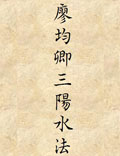 廖均卿三陽水法